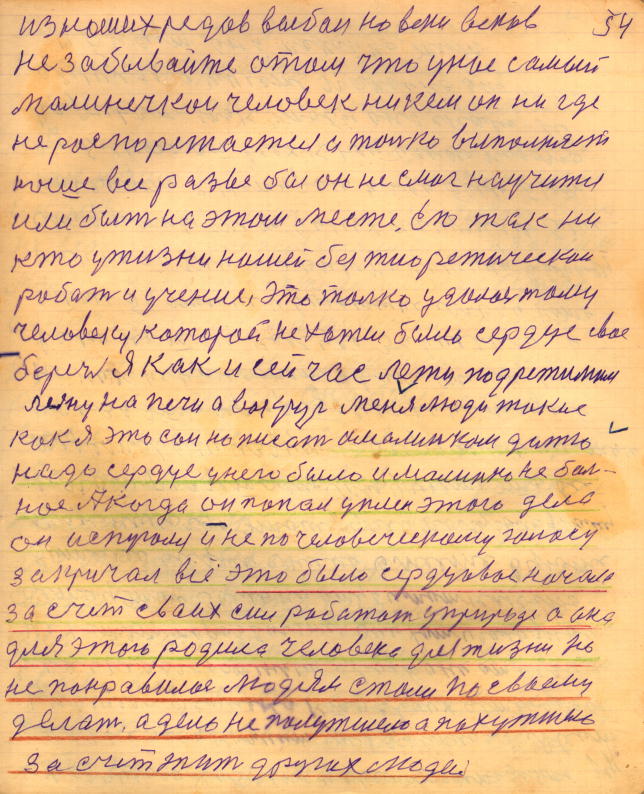 из ноших редов выбал но веки веков 54
не забывайте о том что у нос самый
малинечкой человек никем он ни где
не роспорежается а толко выполняет
ноше все разве бы он не смог научится
или быт на этом месте, Ето так ни
кто у жизни ношей без тиоретической
работ и учение, это толко удалос тому
человеку которой не хотел было сердце свое
береч Я как и сейчас лежу под
лежу на печи а вокруг меня люди такие
как я это сом нописат о малинком дитю
надо сердце у него было и малинко не бал-
ное А когда он попал у плен этого дела
он испугался и не по человеческому голосу
закричал всё это было сердцовое начало
за счет сваих сил работат у природе а ана
для этого родила человека для жизни но
не понравилос людям стали по своему
делат, а дело не получшело а похутшело
за счет жит других людей